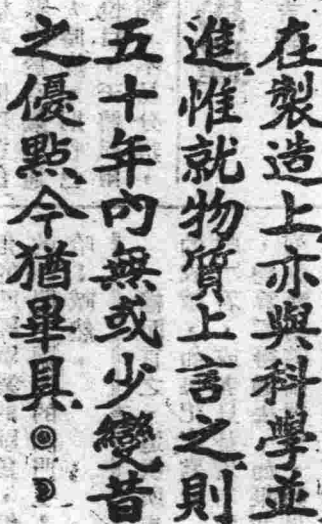 在製造上亦與科學並
進惟就物質上言之則
五十年內無或少變昔
之優點今猶畢具◎